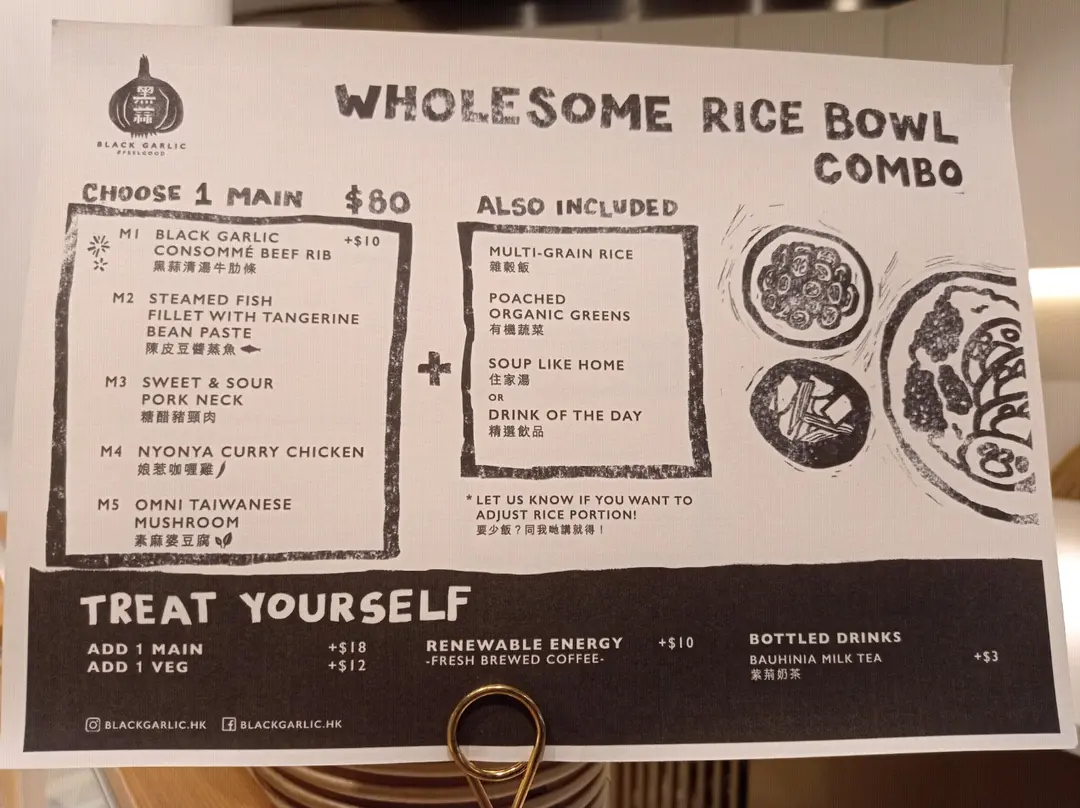 黑蒜
BLACK GARLIC
#FEELGOOD
WHOLESOME RICE BOWL
COMBO
CHOOSE 1 MAIN $80
M1 BLACK GARLIC +$10
CONSOMMÉ BEEF RIB
黑蒜清湯牛肋條
M2 STEAMED FISH
FILLET WITH TANGERINE
BEAN PASTE
陳皮豆醬蒸魚
M3 SWEET & SOUR
PORK NECK
糖醋豬頸肉
M4 NYONYA CURRY CHICKEN
娘惹咖喱雞
M5 OMNI TAIWANESE
MUSHROOM
素麻婆豆腐
+
ALSO INCLUDED
MULTI-GRAIN RICE
雜穀飯
POACHED
ORGANIC GREENS
有機蔬菜
SOUP LIKE HOME
住家湯
OR
DRINK OF THE DAY
精選飲品
* LET US KNOW IF YOU WANT TO
ADJUST RICE PORTION!
要少飯？同我哋講就得！
TREAT YOURSELF
ADD 1 MAIN +$18
ADD 1 VEG +$12
RENEWABLE ENERGY +$10
-FRESH BREWED COFFEE-
BOTTLED DRINKS
BAUHINIA MILK TEA +$3
紫荊奶茶
BLACKGARLIC.HK BLACKGARLIC.HK